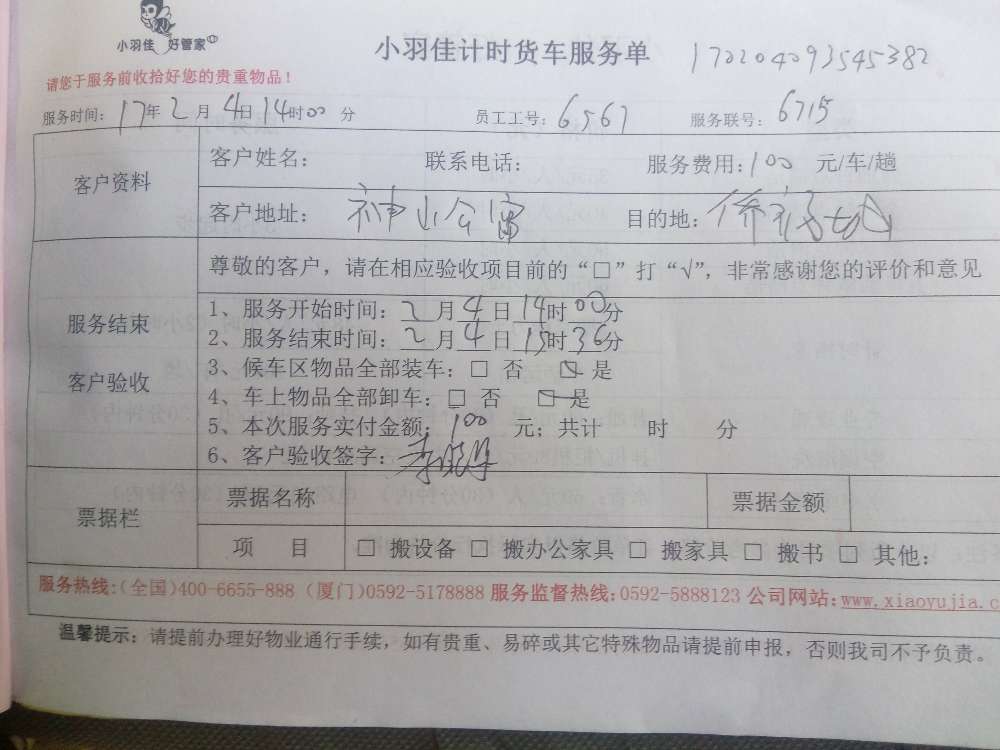 小羽佳 好管家
小羽佳计时货车服务单 17020409354538​2
请您于服务前收拾好您的贵重物品！
服务时间：17年2月4日14时00分 员工工号：6567 服务联号：6715
客户资料
客户姓名： 联系电话： 服务费用：100 元/车/趟
客户地址：神山公寓 目的地：侨福城
尊敬的客户，请在相应验收项目前的“□”打“√”，非常感谢您的评价和意见
服务结束
客户验收
1、服务开始时间：2月4日14时00分
2、服务结束时间：2月4日15时36分
3、候车区物品全部装车：□ 否 ☑ 是
4、车上物品全部卸车：□ 否 ☑ 是
5、本次服务实付金额：100 元；共计 时 分
6、客户验收签字：
票据栏
票据名称 票据金额
项 目 □ 搬设备 □ 搬办公家具 □ 搬家具 □ 搬书 □ 其他：
服务热线：（全国）400-6655-888（厦门）0592-5178888 服务监督热线：0592-5888123 公司网站：www.xiaoyujia.c
温馨提示：请提前办理好物业通行手续，如有贵重、易碎或其它特殊物品请提前申报，否则我司不予负责。